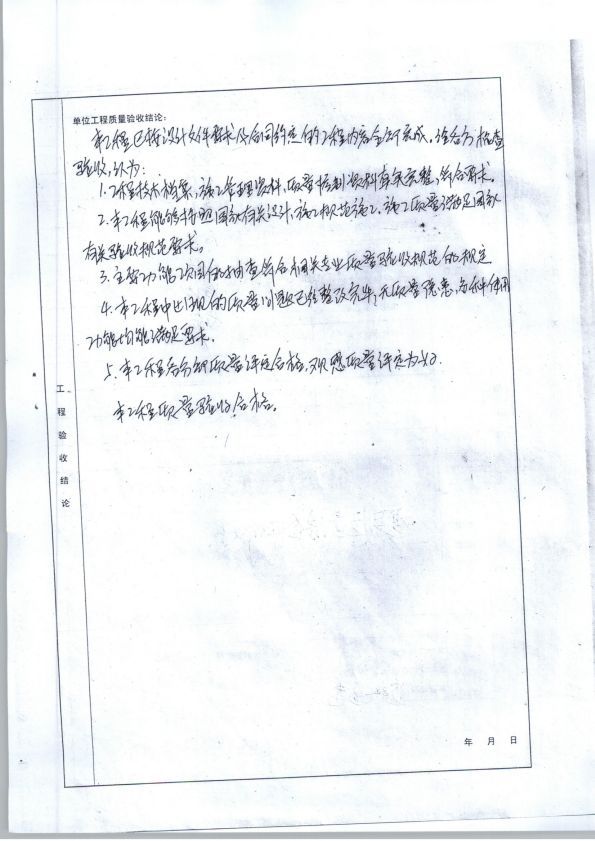 单位工程质量验收结论:
本工程已按设计文件要求及合同约定的工程内容全部完成,经各方检查
验收,认为:
1.工程技术档案,施工管理资料,质量控制资料真实完整,符合要求。
2.本工程能够按照国家有关设计、施工规范施工,施工质量满足国家
有关验收规范要求。
3.主要功能项目的抽查符合相关专业质量验收规范的规定
4.本工程中出现的质量问题已经整改完毕,无质量隐患,各种使用
功能均能满足要求。
5.本工程各分部质量评定合格,观感质量评定为好.
本工程质量验收合格。
工程验收结论
年 月 日